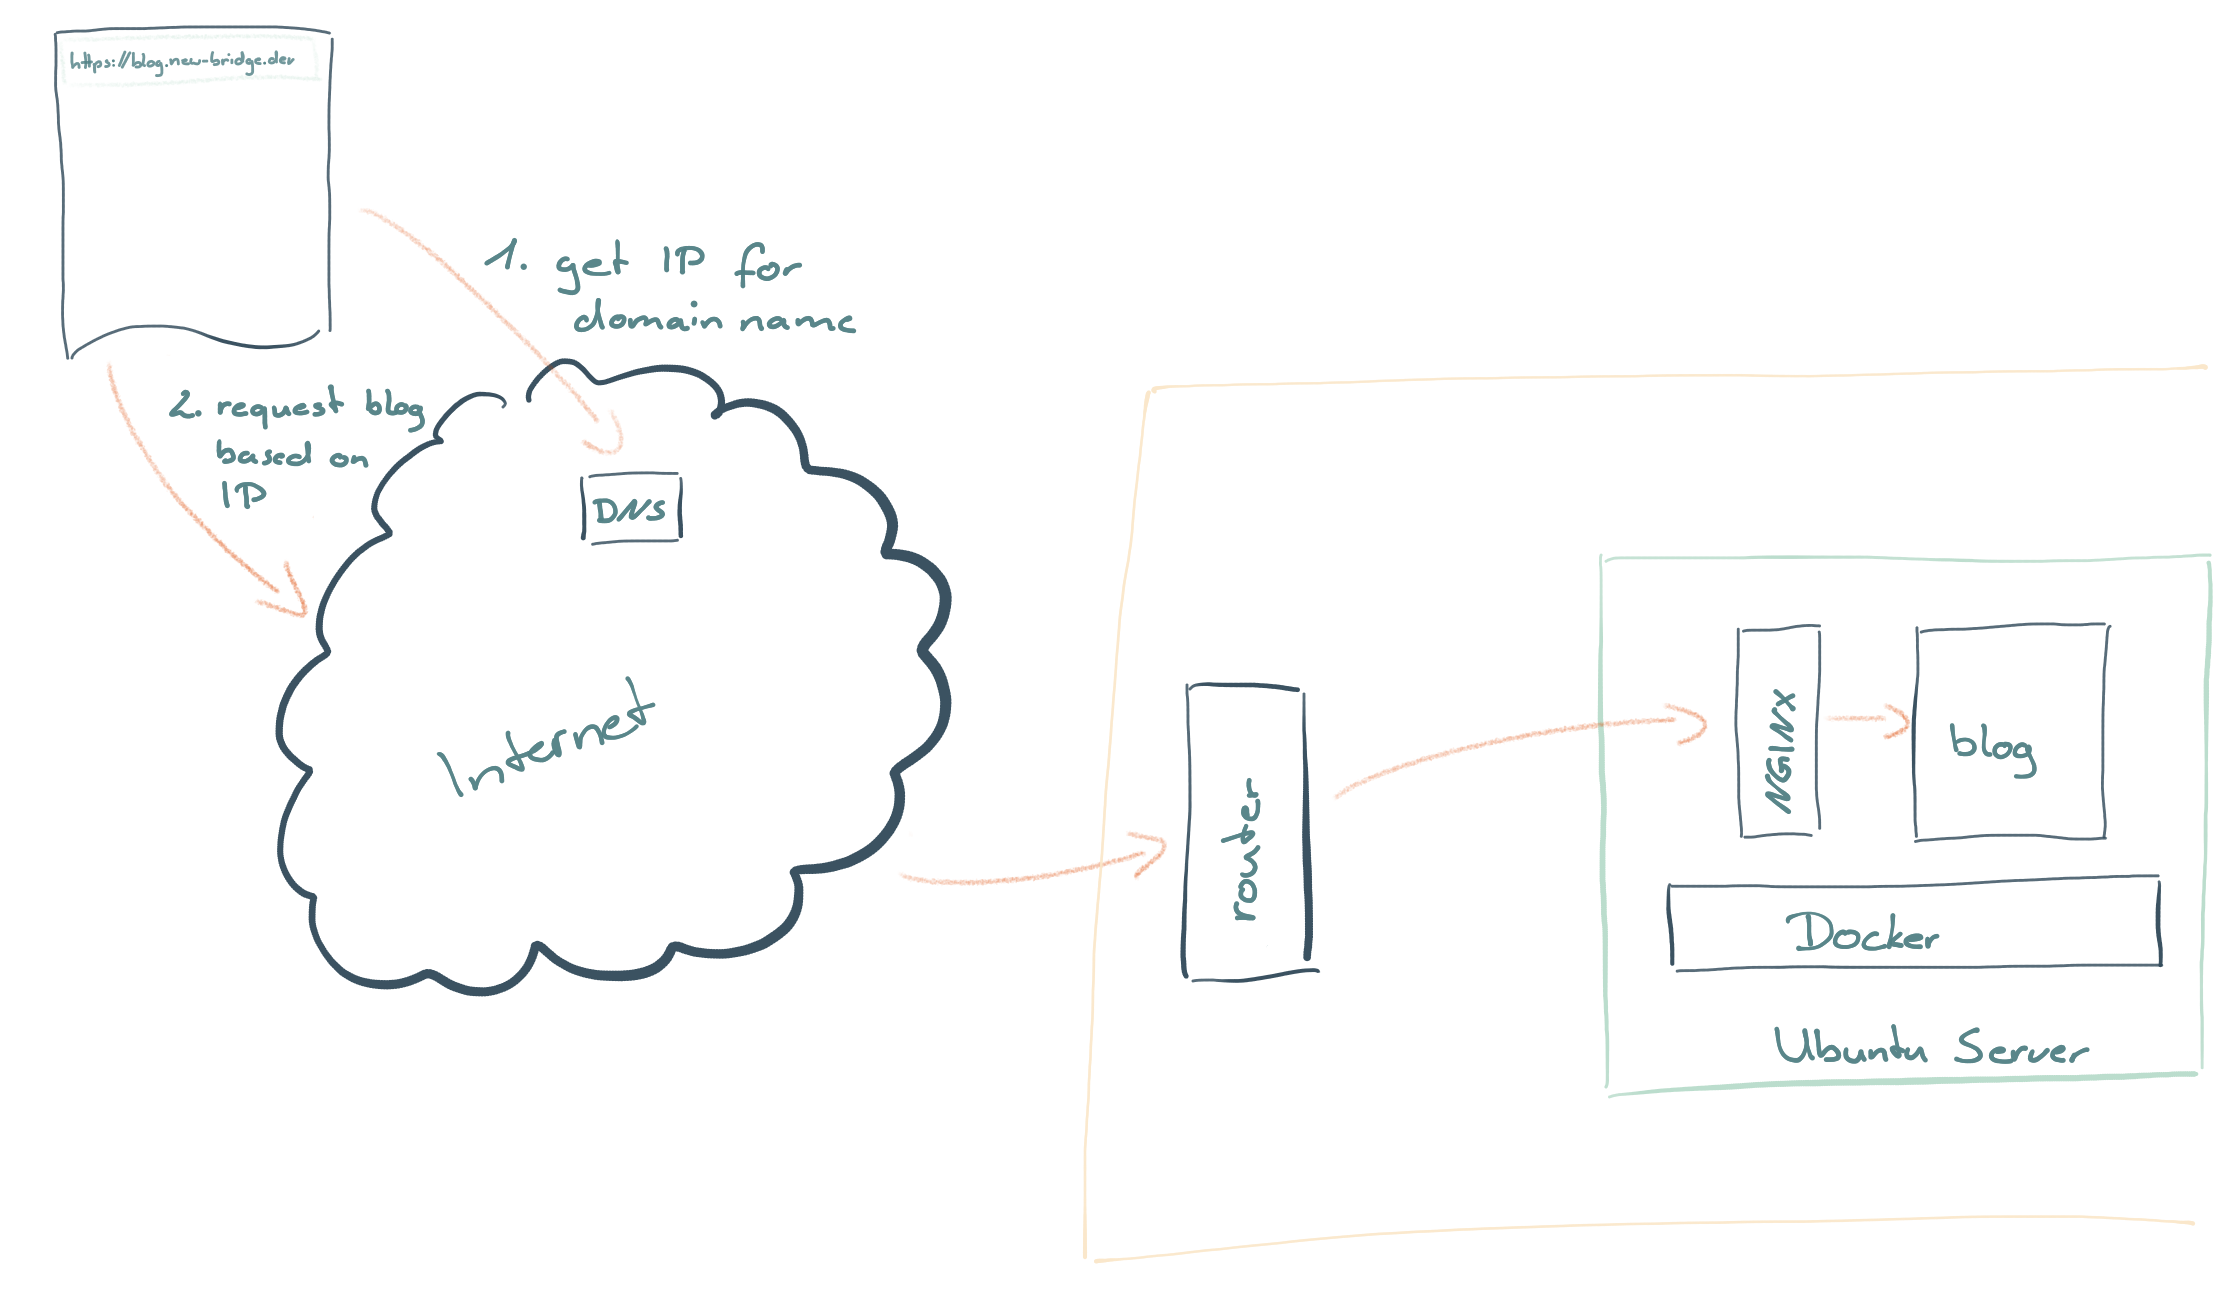 https://blog.new-bridge.dev
1. get IP for
domain name
2. request blog
based on
IP
DNS
Internet
router
NGINX
blog
Docker
Ubuntu Server